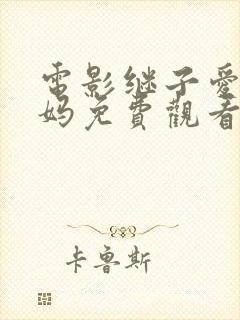 電影继子爱
妈免費觀看
卡鲁斯